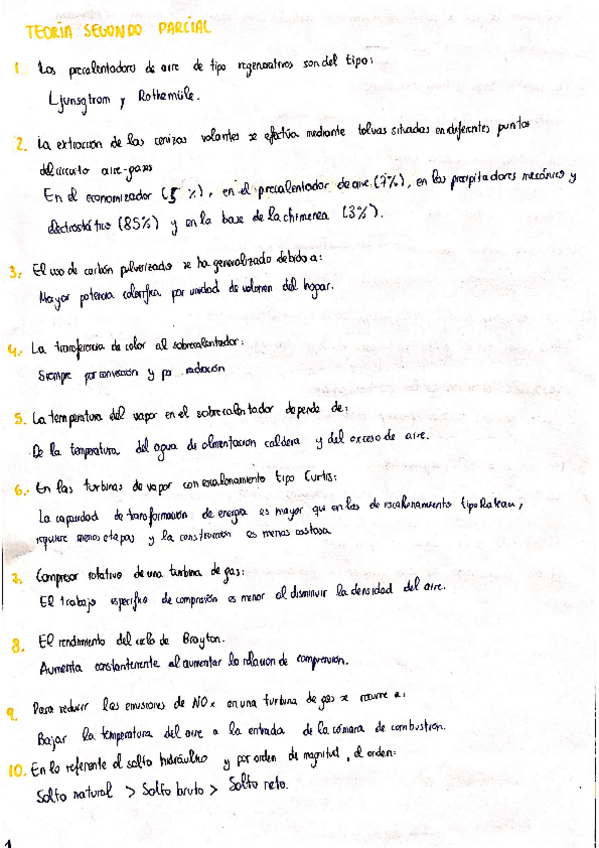 TEORÍA SEGUNDO PARCIAL
1. Los precalentadores de aire de tipo regenerativos son del tipo:
Ljunsgtrom y Rothemüle.
2. La extracción de las cenizas volantes se efectúa mediante tolvas situadas en diferentes puntos
del circuito aire-gases
En el economizador (5 %), en el precalentador de aire (7%), en los precipitadores mecánico y
electrostático (85%) y en la base de la chimenea (3%).
3. El uso de carbón pulverizado se ha generalizado debido a:
Mayor potencia calorífica por unidad de volumen del hogar.
4. La transferencia de calor al sobrecalentador:
Siempre por convección y por radiación
5. La temperatura del vapor en el sobrecalentador depende de:
De la temperatura del agua de alimentación caldera y del exceso de aire.
6. En las turbinas de vapor con escalonamiento tipo Curtis:
La capacidad de transformación de energía es mayor que en las de escalonamiento tipo Rateau,
requiere menos etapas y la construcción es menos costosa
7. Compresor rotativo de una turbina de gas:
El trabajo específico de compresión es menor al disminuir la densidad del aire.
8. El rendimiento del ciclo de Brayton.
Aumenta constantemente al aumentar la relacion de compresión.
9. Para reducir las emisiones de NOx en una turbina de gas se recurre a:
Bajar la temperatura del aire a la entrada de la cámara de combustión.
10. En lo referente al salto hidráulico y por orden de magnitud, el orden:
Salto natural > Salto bruto > Salto neto.
1